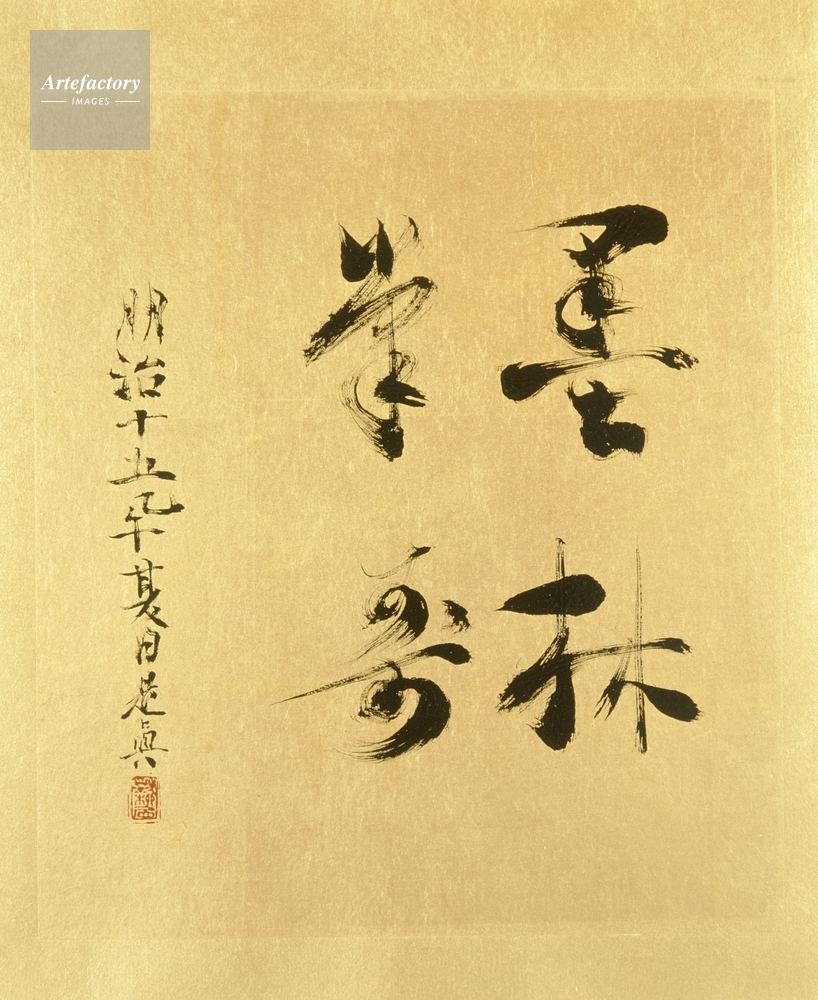 墨林
筆
明治十五壬午夏日是真
Artefactory
IMAGES